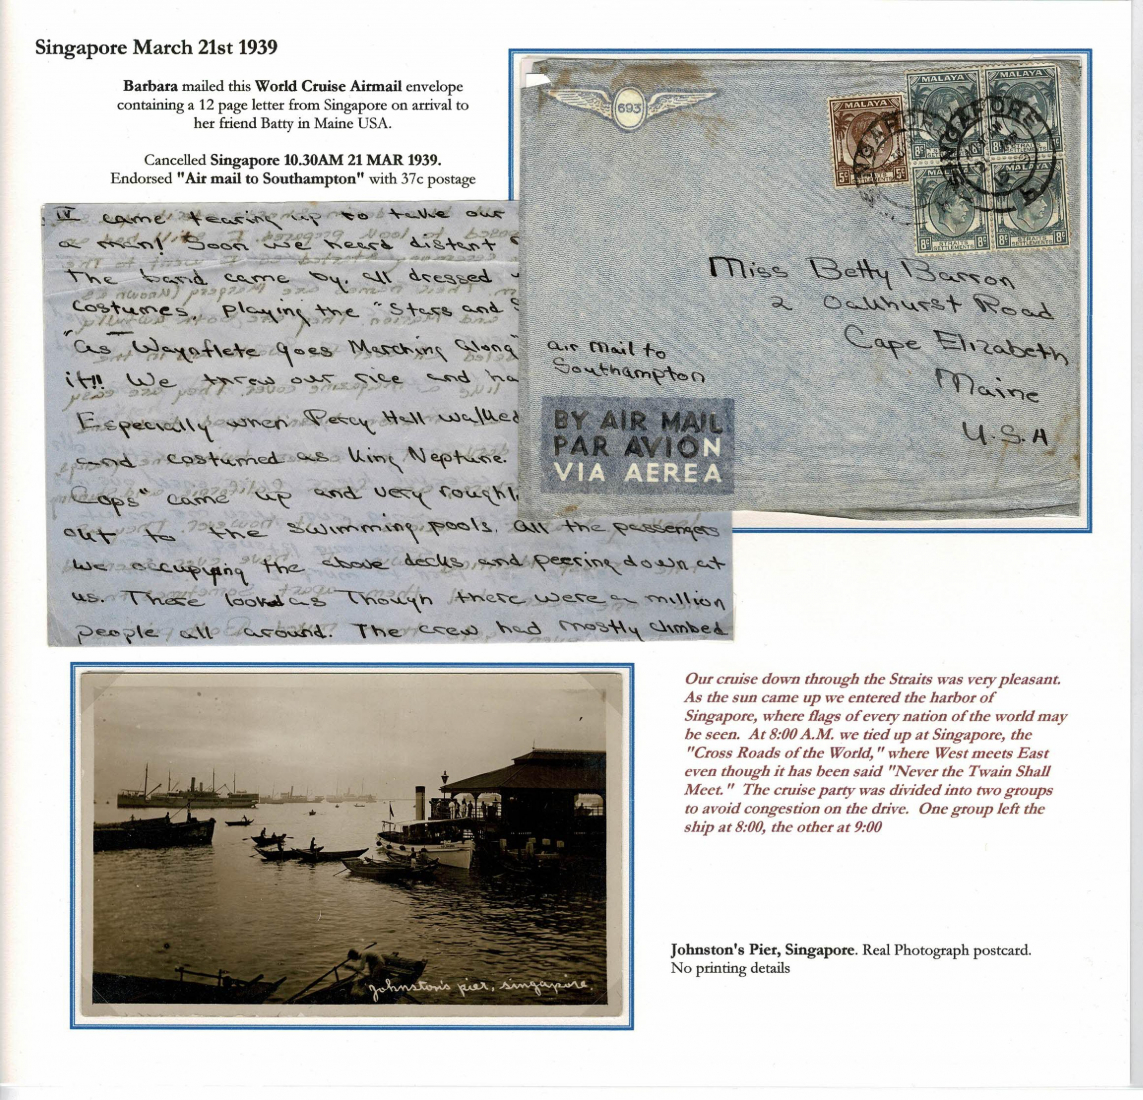 Singapore March 21st 1939
Barbara mailed this World Cruise Airmail envelope
containing a 12 page letter from Singapore on arrival to
her friend Batty in Maine USA.
Cancelled Singapore 10.30AM 21 MAR 1939.
Endorsed "Air mail to Southampton" with 37c postage
693
MALAYA
MALAYA
MALAYA
5c
5c
8c
8c
8c
8c
8c
STRAITS
STRAITS
SINGAPORE
Miss Betty Barron
2 Oakhurst Road
Cape Elizabeth
Maine
U.S.A
Air Mail to
Southampton
BY AIR MAIL
PAR AVION
VIA AEREA
IV came tearing up to take our
a run! Soon we heard distant
the band came by, all dressed
costumes, playing the "Stars and S
"As Waynflete Goes Marching Along"
it!! We threw our rice and ha
Especially when Percy Hall walked
and costumed as King Neptune.
Cops" came up and very roughl
out to the swimming pools. All the passengers
we occupying the above decks and peering down at
us. There looked as though there were a million
people all around. The crew had mostly climbed
Our cruise down through the Straits was very pleasant.
As the sun came up we entered the harbor of
Singapore, where flags of every nation of the world may
be seen. At 8:00 A.M. we tied up at Singapore, the
"Cross Roads of the World," where West meets East
even though it has been said "Never the Twain Shall
Meet." The cruise party was divided into two groups
to avoid congestion on the drive. One group left the
ship at 8:00, the other at 9:00
Johnston's pier, singapore.
Johnston's Pier, Singapore. Real Photograph postcard.
No printing details